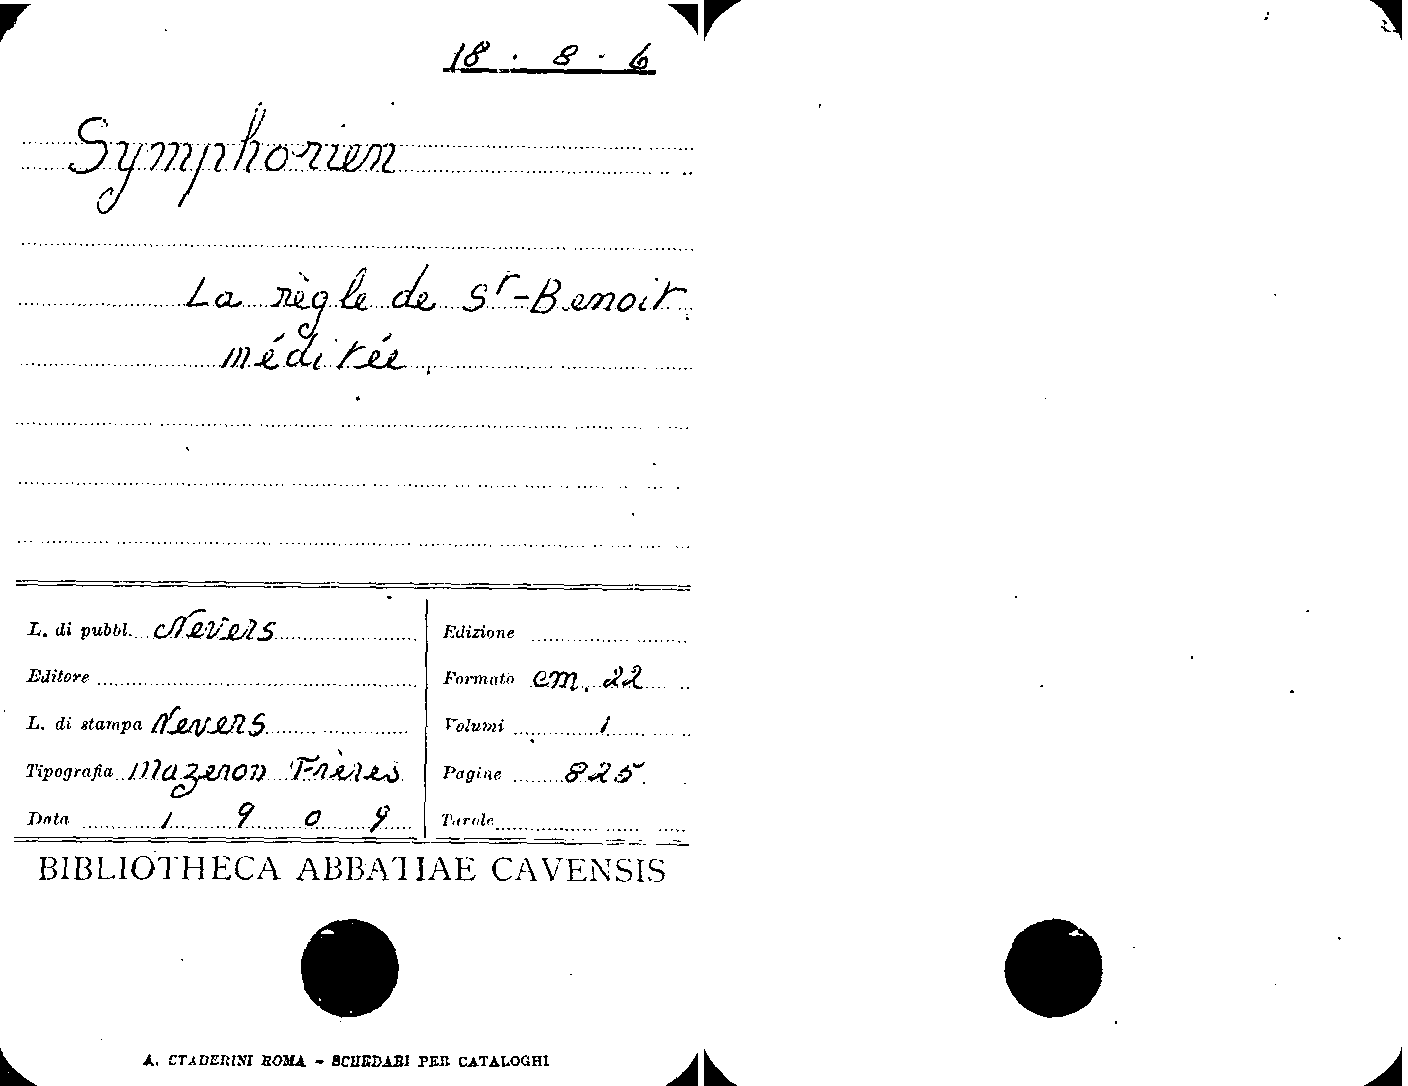 18 . 8 . 6
Symphorien
La règle de Sr-Benoit
méditée.
L. di pubbl. Nevers
Editore
L. di stampa Nevers
Tipografia Mazeron Frères
Data 1 9 0 9
Edizione
Formato cm. 22
Volumi 1
Pagine 825
Tavole
BIBLIOTHECA ABBATIAE CAVENSIS
A. STADERINI ROMA - SCHEDARI PER CATALOGHI